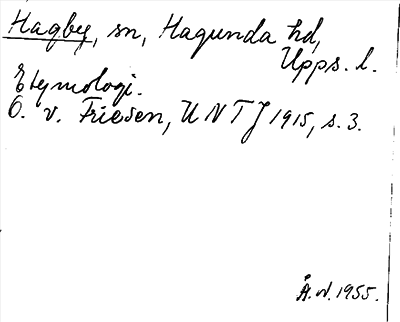 Hagby, sn, Hagunda hd,
Upps. l.
Etymologi.
O. v. Friesen, UNTJ 1915, s. 3.
Å.W. 1955.